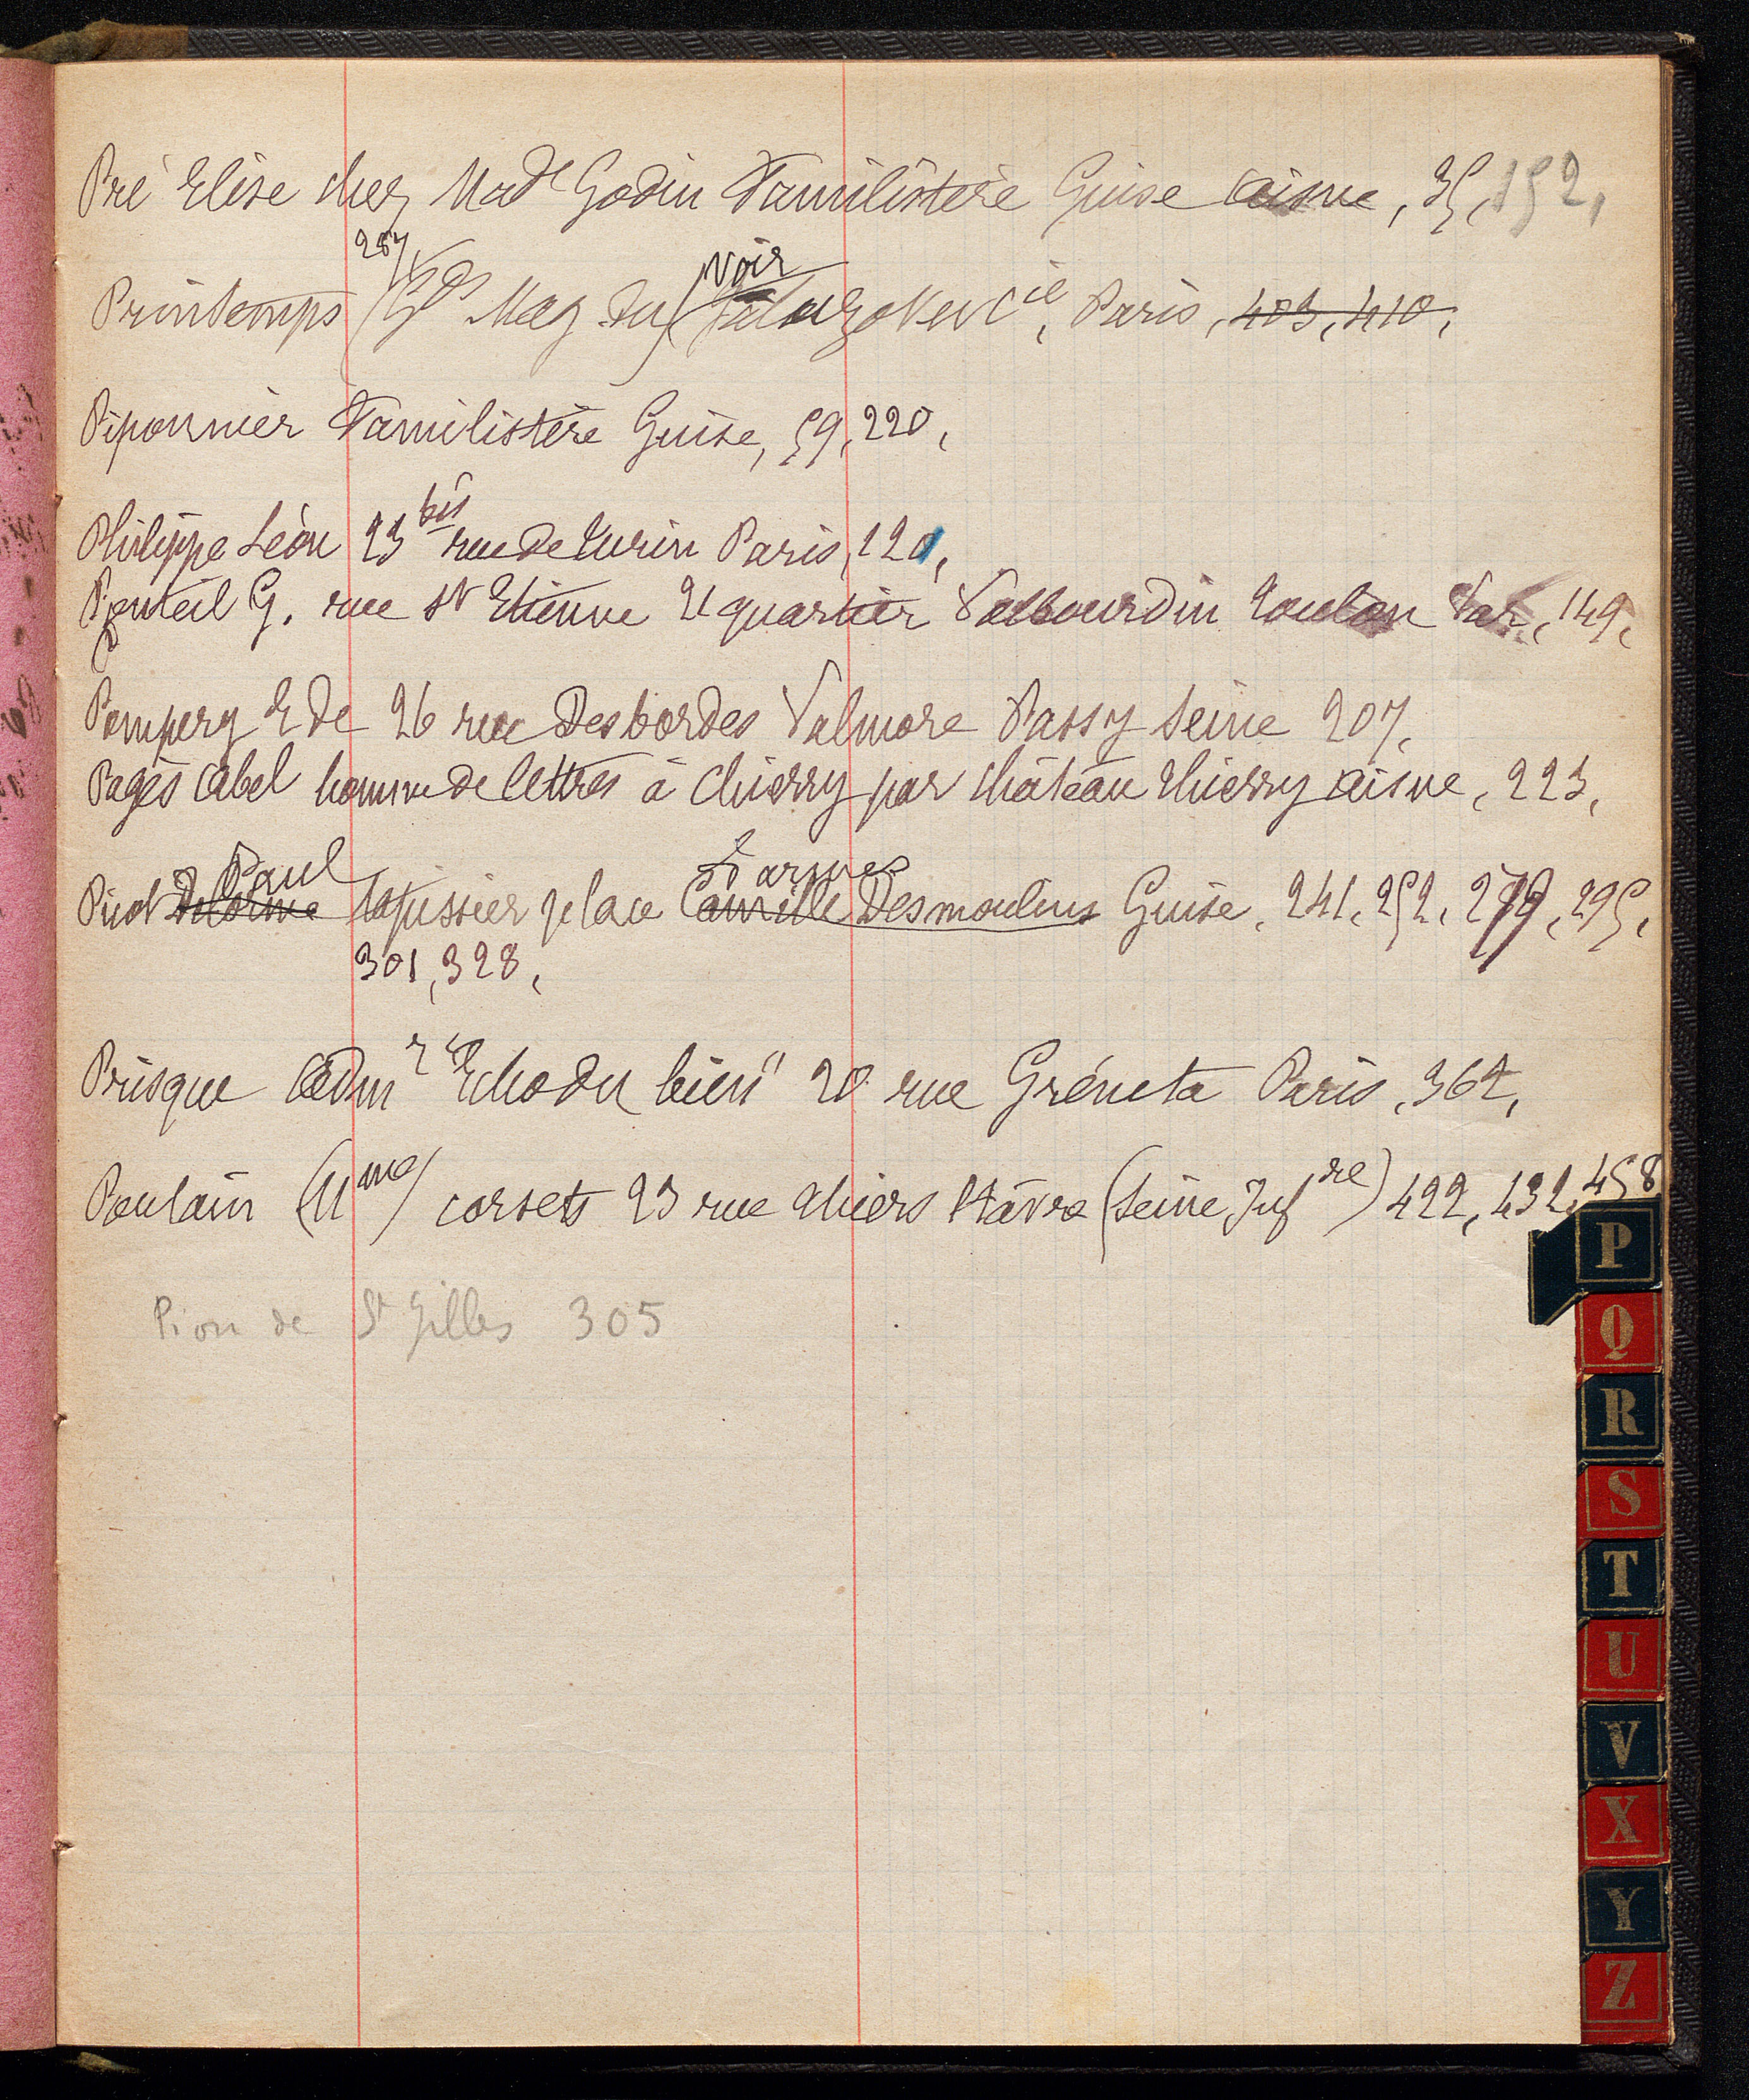 Pré Elise chez Made Godin Familistère Guise Aisne, 35, 152,
287
Printemps (Gds Mag. du) (voir Jaluzot et Cie, Paris, 403, 410,
Piponnier Familistère Guise, 59, 220,
Philippe Léon 23 bis rue de Turin Paris, 120,
Ponteil G. rue St Etienne 21 quartier Valbourdin Toulon Var, 149,
Pompery E de 26 rue Desbordes Valmore Passy Seine 207,
Pagès Abel homme de lettres à Chierry par Château Thierry Aisne, 223,
Paul d'armes
Piot Delorme tapissier place Camille Desmoulins Guise, 241, 252, 279, 295,
301, 328,
Prisque Admr "Echo du bien" 20 rue Grénéta Paris, 362,
Poulain (Mme) corsets 23 rue Thiers Hâvre (Seine Infre) 422, 432, 458
Pion de St Gilles 305
P
Q
R
S
T
U
V
X
Y
Z